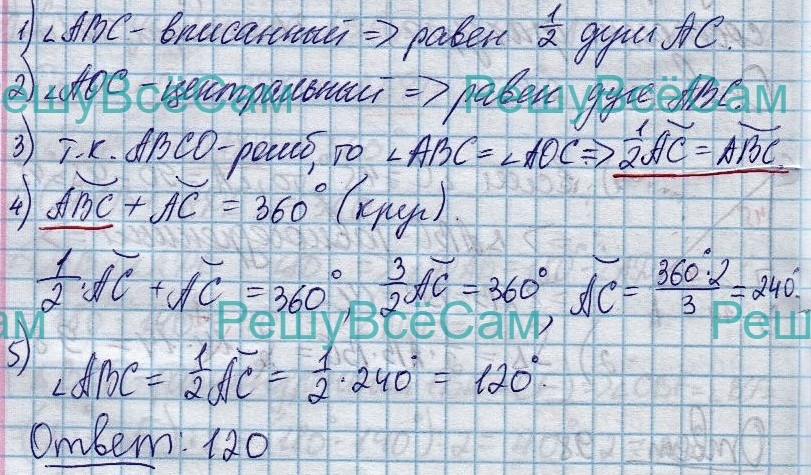 1) ∠ABC - вписанный => равен 1/2 дуги AC.
2) ∠AOC - центральный => равен дуге ABC.
РешуВсёСам РешуВсёСам
3) т.к. ABCO - ромб, то ∠ABC = ∠AOC => 1/2 A͡C = A͡BC.
4) A͡BC + A͡C = 360° (круг).
1/2 · A͡C + A͡C = 360°, 3/2 A͡C = 360°, A͡C = 360°·2/3 = 240°.
ам РешуВсёСам Реш
5) ∠ABC = 1/2 A͡C = 1/2 · 240° = 120°.
Ответ: 120